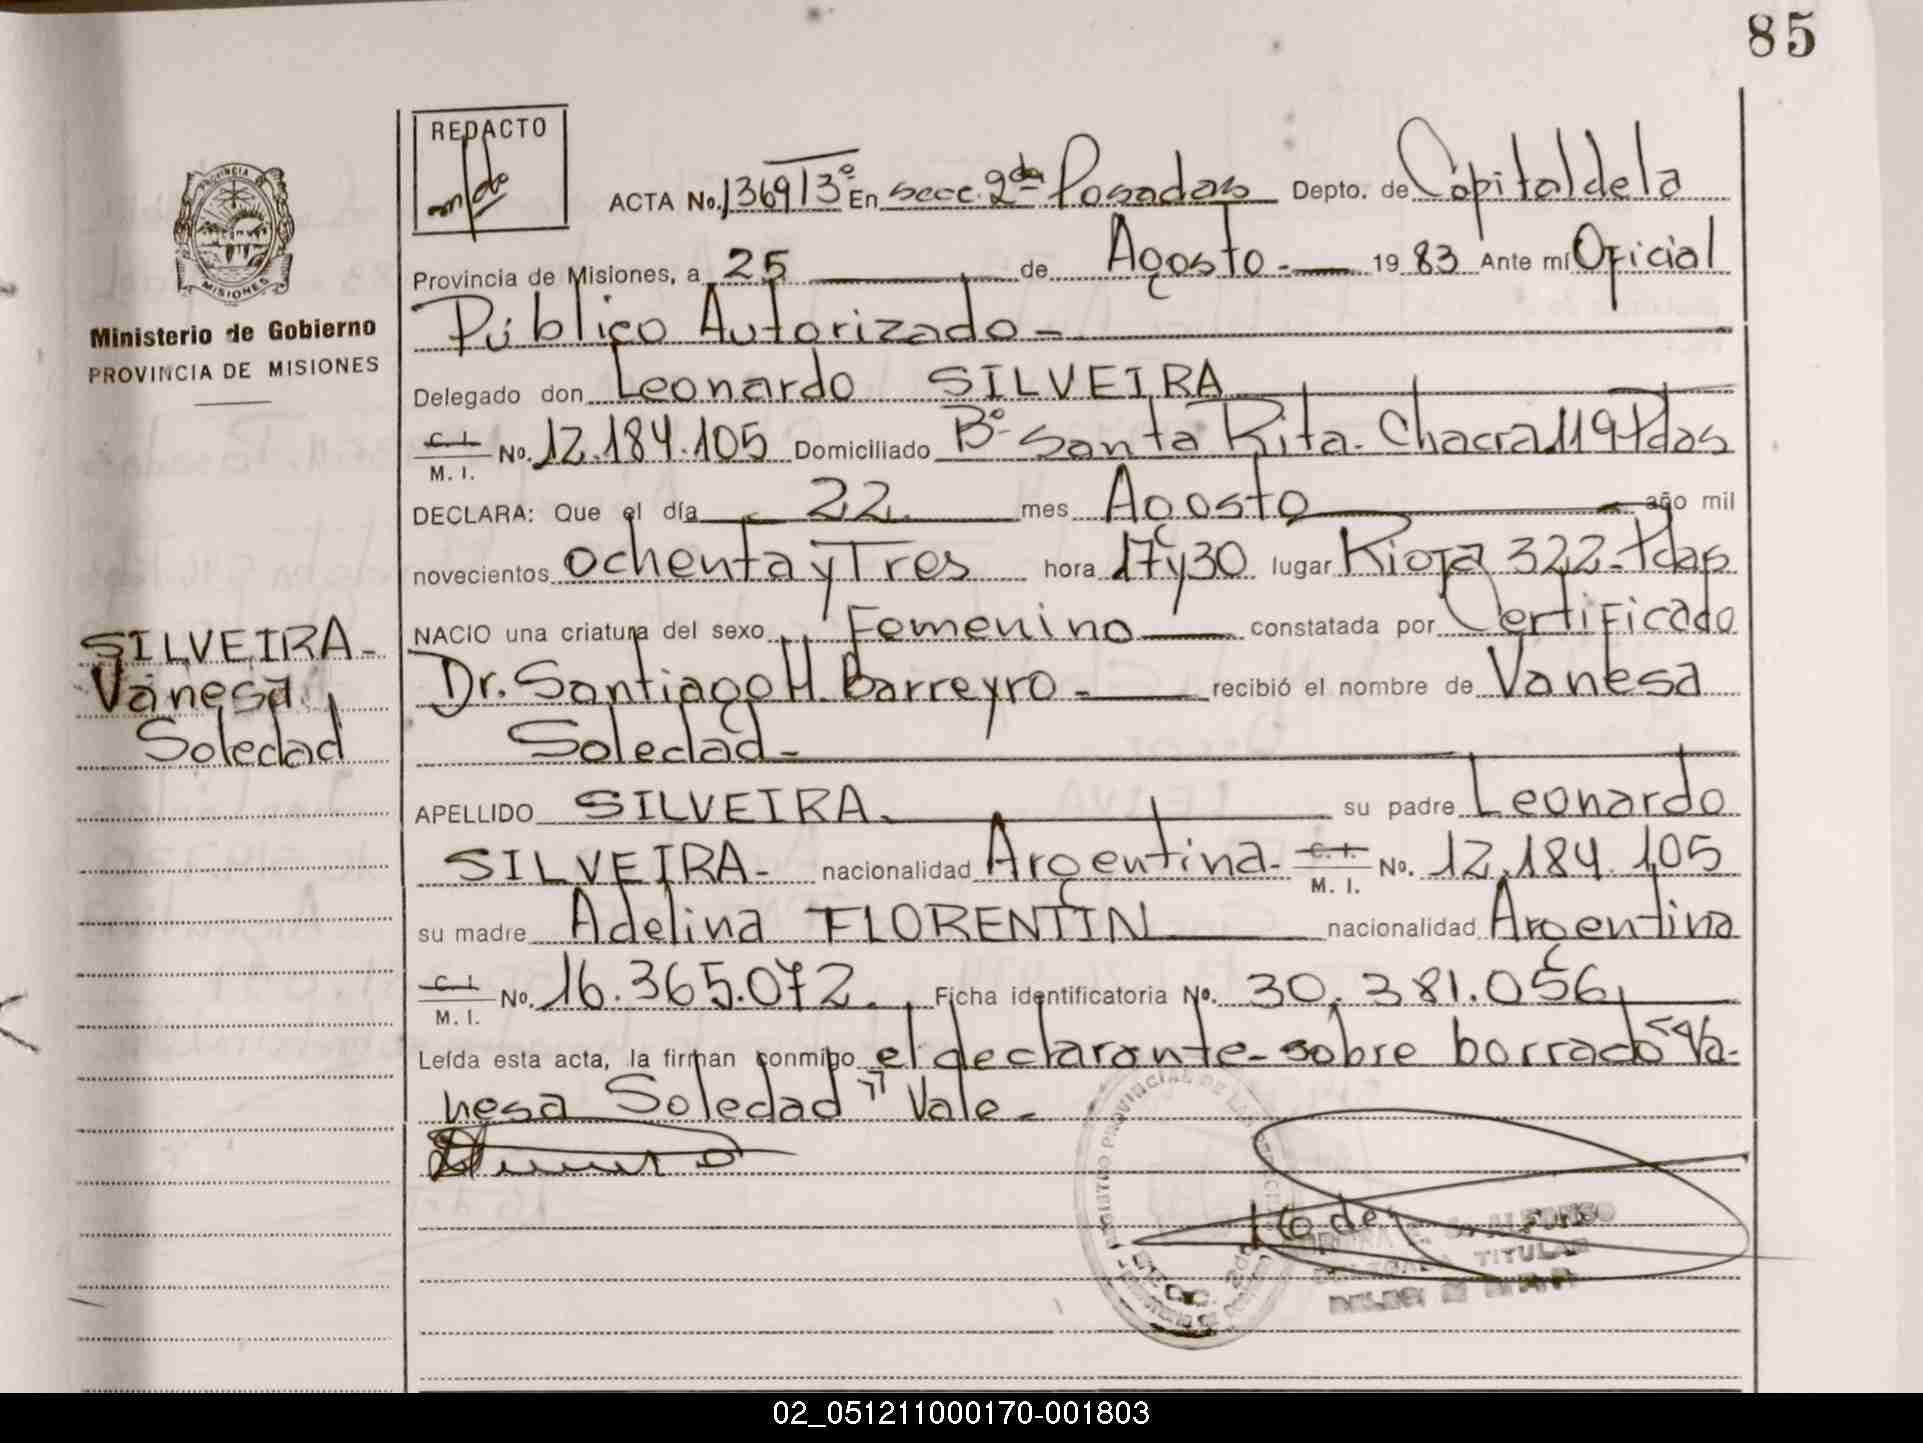 85
REDACTO
PROVINCIA
MISIONES
Ministerio de Gobierno
PROVINCIA DE MISIONES
ACTA No. 1369/3º En secc. 2da Posadas Depto. de Capital de la
Provincia de Misiones, a 25 de Agosto.- 19 83 Ante mí Oficial
Público Autorizado-
Delegado don Leonardo SILVEIRA
C. I. / M. I. No. 12.184.105 Domiciliado Bº Santa Rita. Chacra 119 Pdas
DECLARA: Que el día 22 mes Agosto año mil
novecientos ochenta y Tres hora 17 y 30 lugar Rioja 322- Pdas
NACIO una criatura del sexo Femenino constatada por Certificado
Dr. Santiago H. Barreyro - recibió el nombre de Vanesa
Soledad-
SILVEIRA-
Vanesa
Soledad
APELLIDO SILVEIRA su padre Leonardo
SILVEIRA- nacionalidad Argentina- C. I. / M. I. No. 12.184.105
su madre Adelina FLORENTIN nacionalidad Argentina
C. I. / M. I. No. 16.365.072. Ficha identificatoria No. 30.381.056
Leída esta acta, la firman conmigo el declarante- sobre borrado "Va-
nesa Soledad" Vale-
ALFONSO
TITULAR
02_051211000170-001803